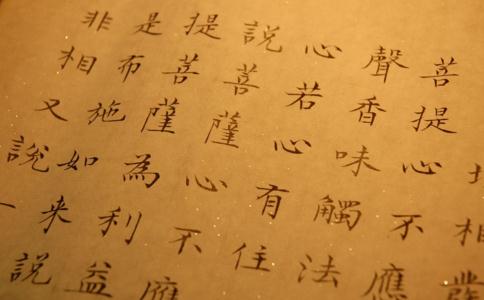 相發
菩提心不應
聲香味觸法
心若心有住
說菩薩心不應
提菩薩為利益
是布施如來說
非相又說一